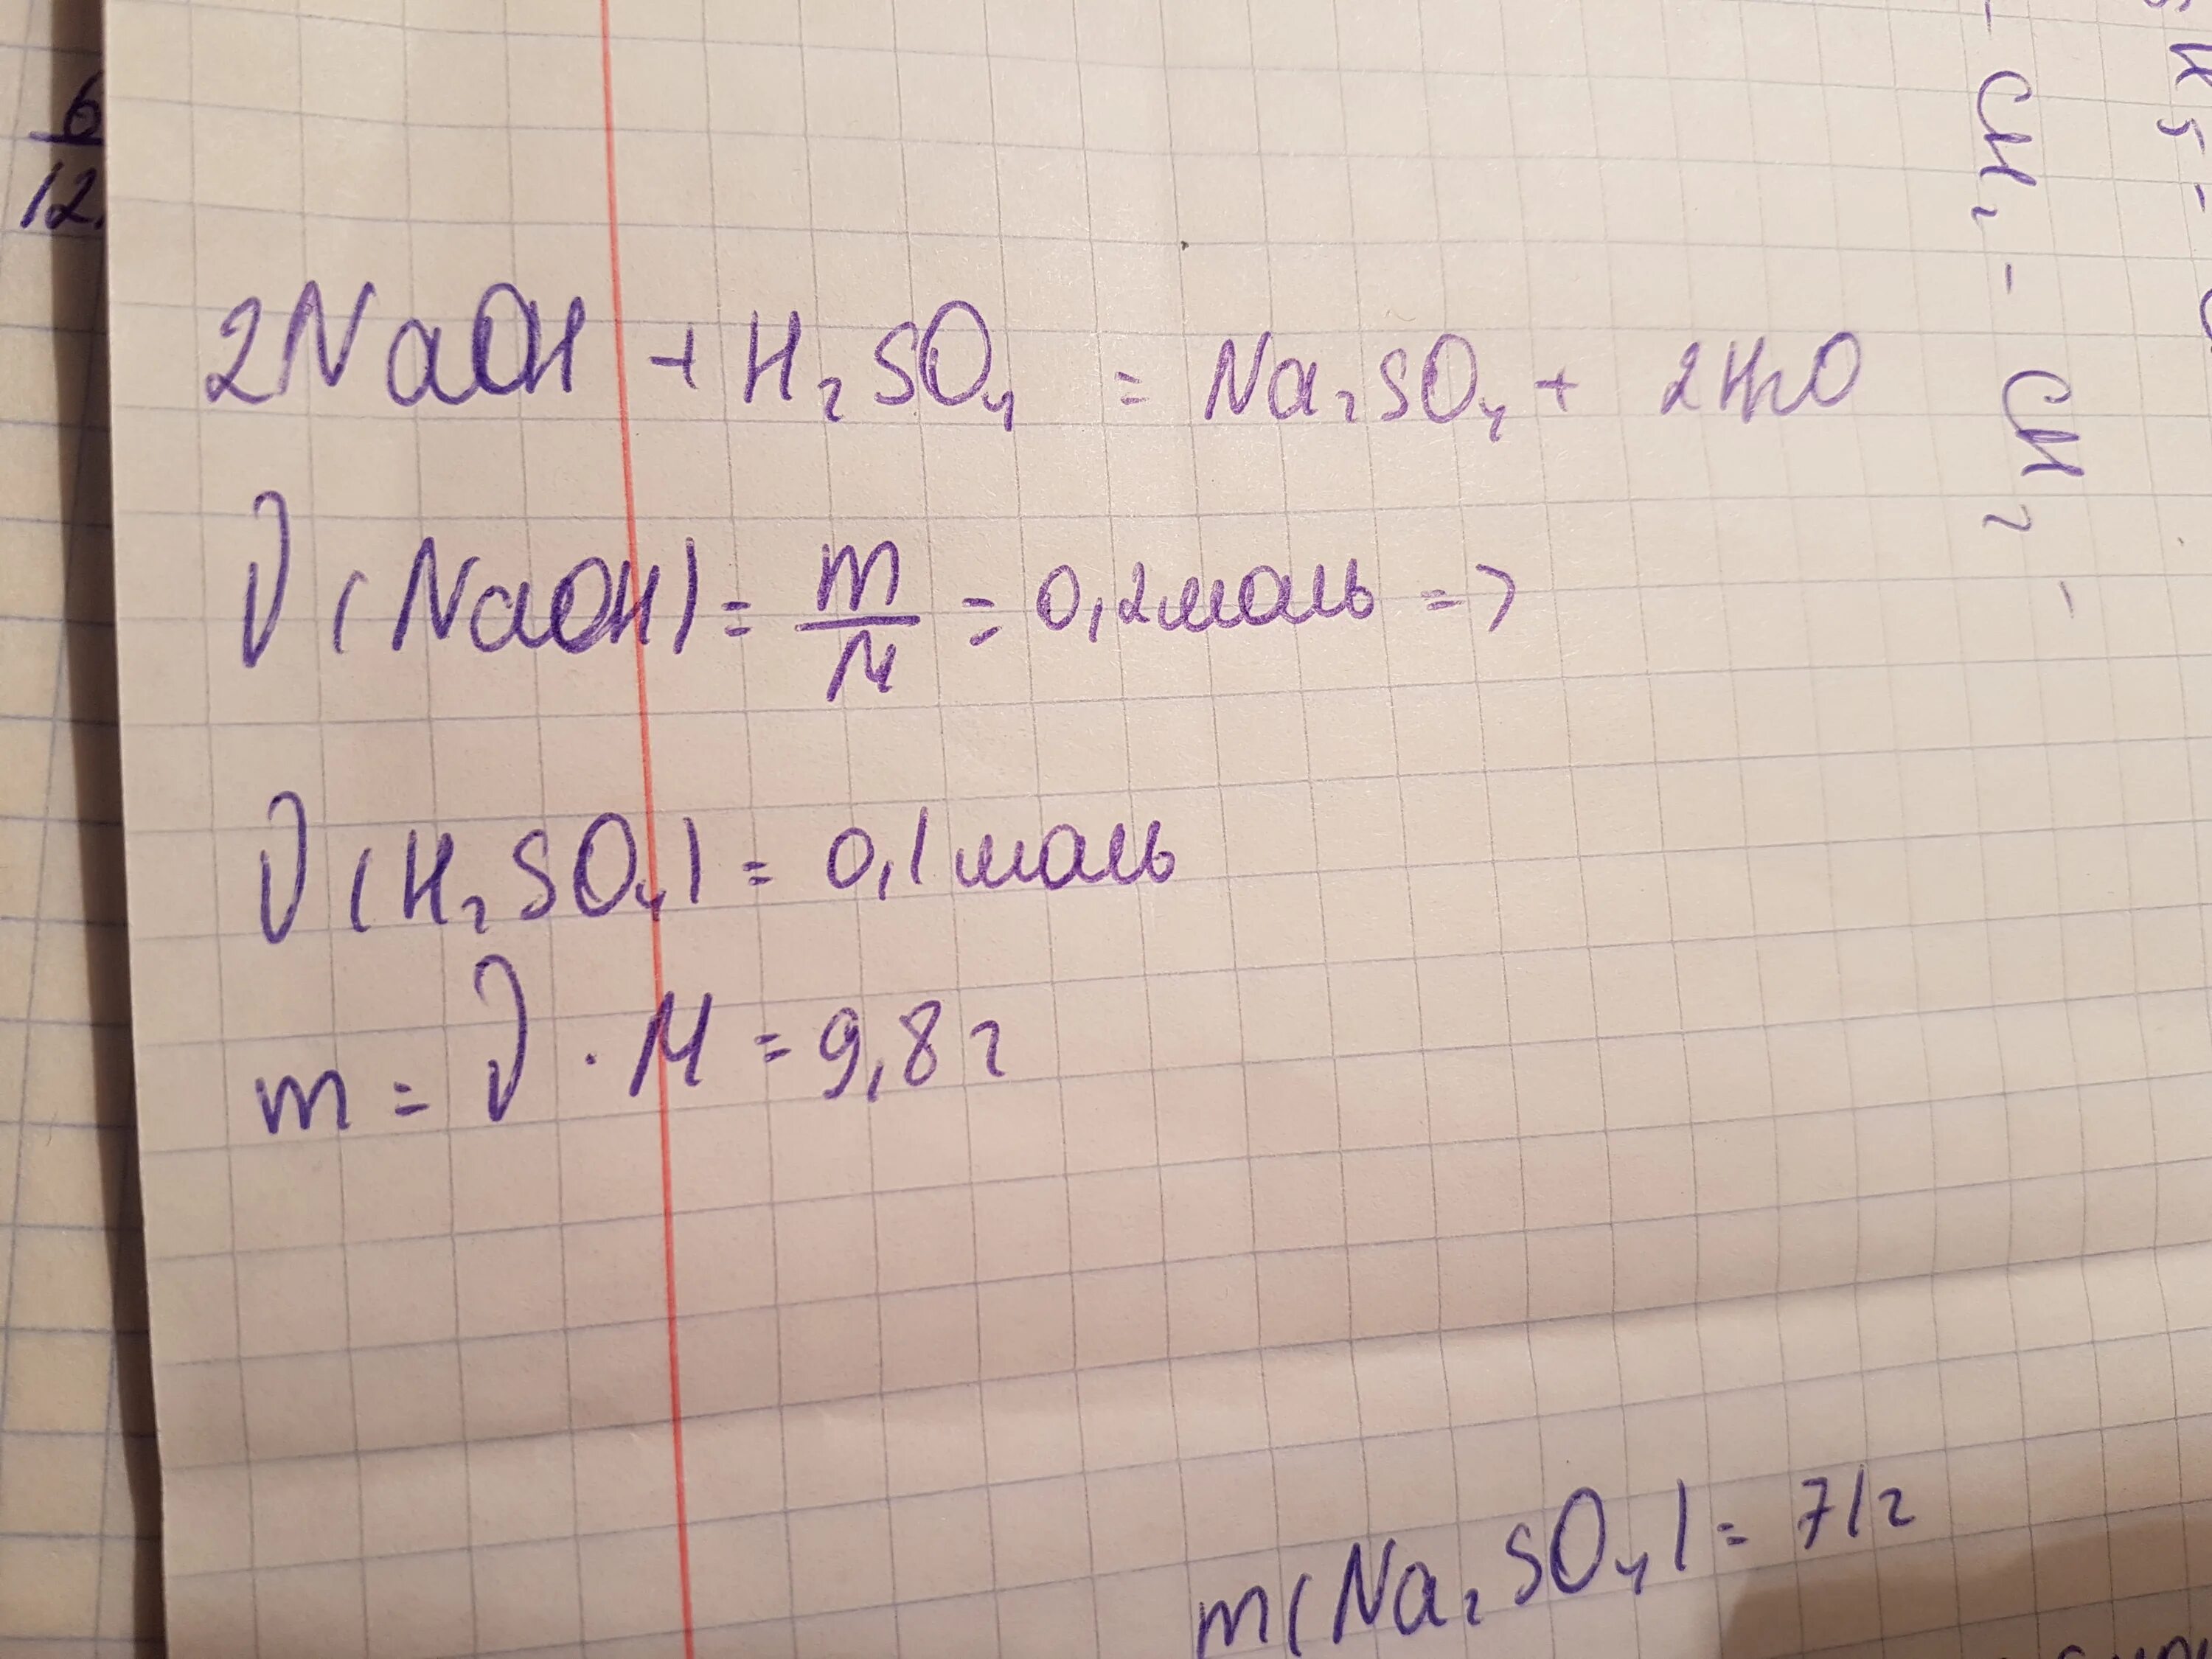 2NaOH + H₂SO₄ = Na₂SO₄ + 2H₂O
ν(NaOH) = m/M = 0,2моль =>
ν(H₂SO₄) = 0,1моль
m = ν · M = 9,8г
m(Na₂SO₄) = 71г
6
12,
- CH₂ - CH₂ -